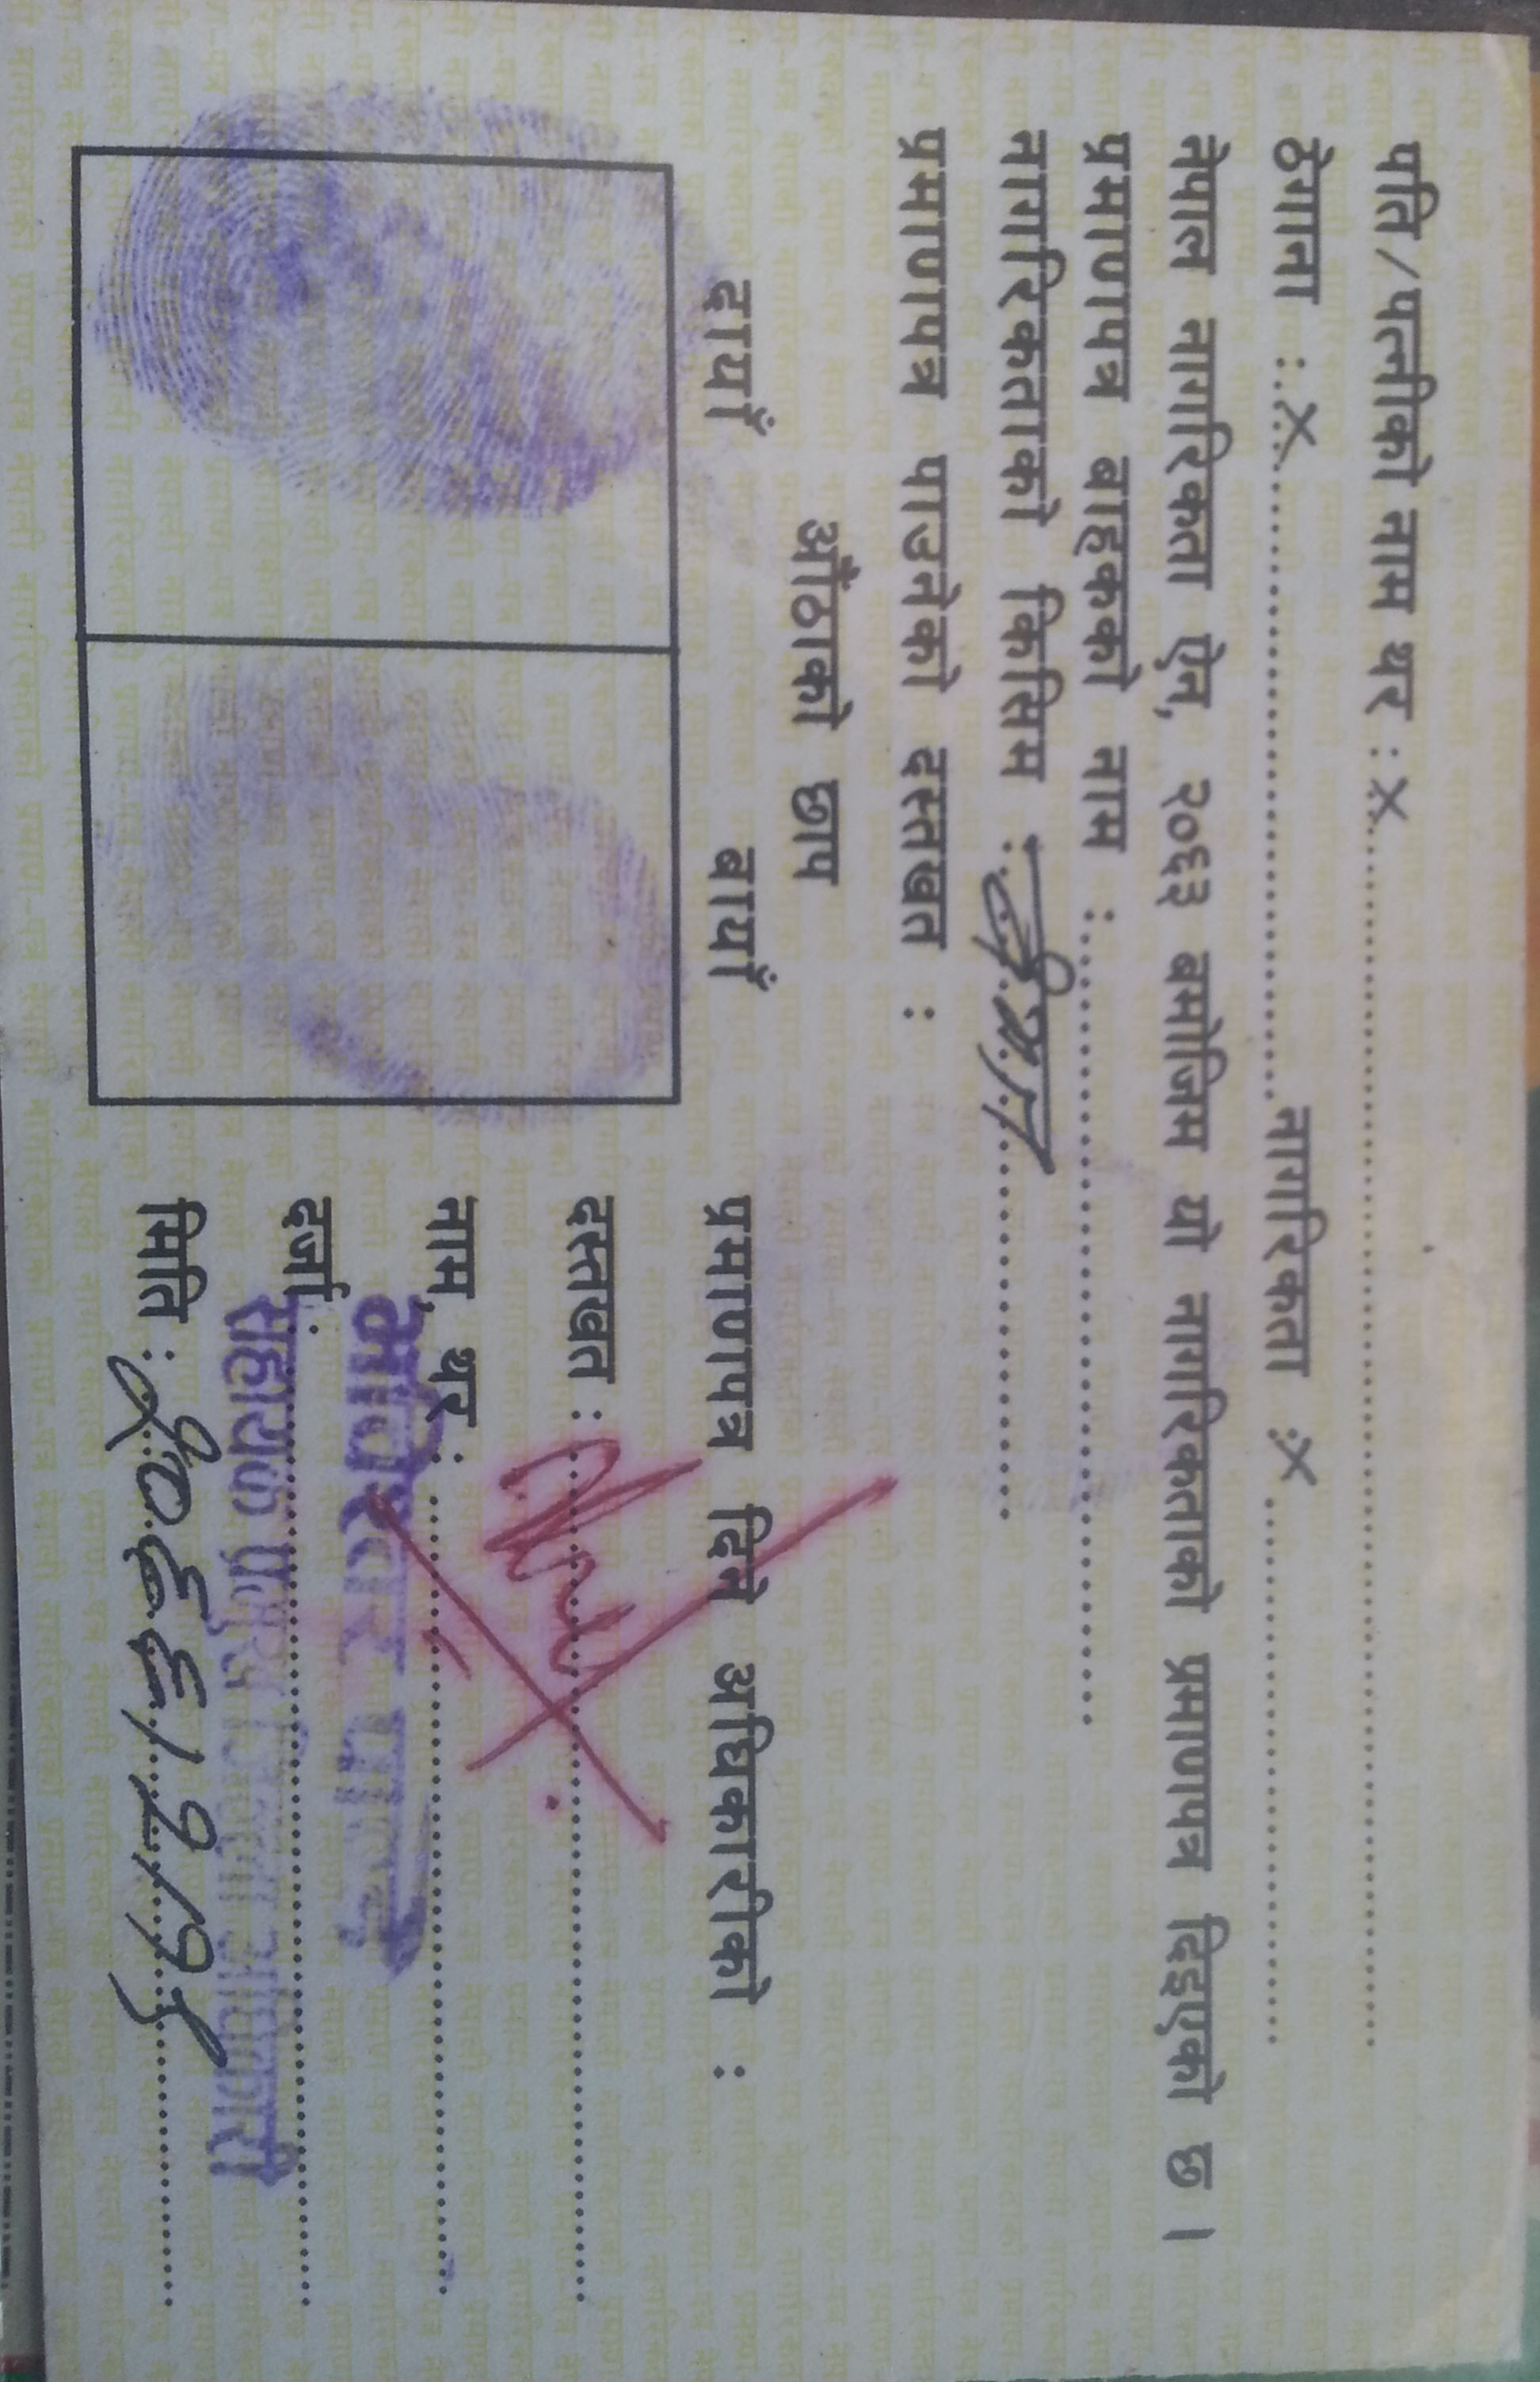 पति/पत्नीको नाम थर : ×
ठेगाना : × नागरिकता : ×
नेपाल नागरिकता ऐन, २०६३ बमोजिम यो नागरिकताको प्रमाणपत्र दिइएको छ ।
प्रमाणपत्र बाहकको नाम :
नागरिकताको किसिम : वंशज
प्रमाणपत्र पाउनेको दस्तखत :
औंठाको छाप
दायाँ बायाँ
प्रमाणपत्र दिने अधिकारीको :
दस्तखत :
नाम, थर :
दर्जा :
सहायक प्रमुख जिल्ला अधिकारी
मिति : २०६६।२।१५